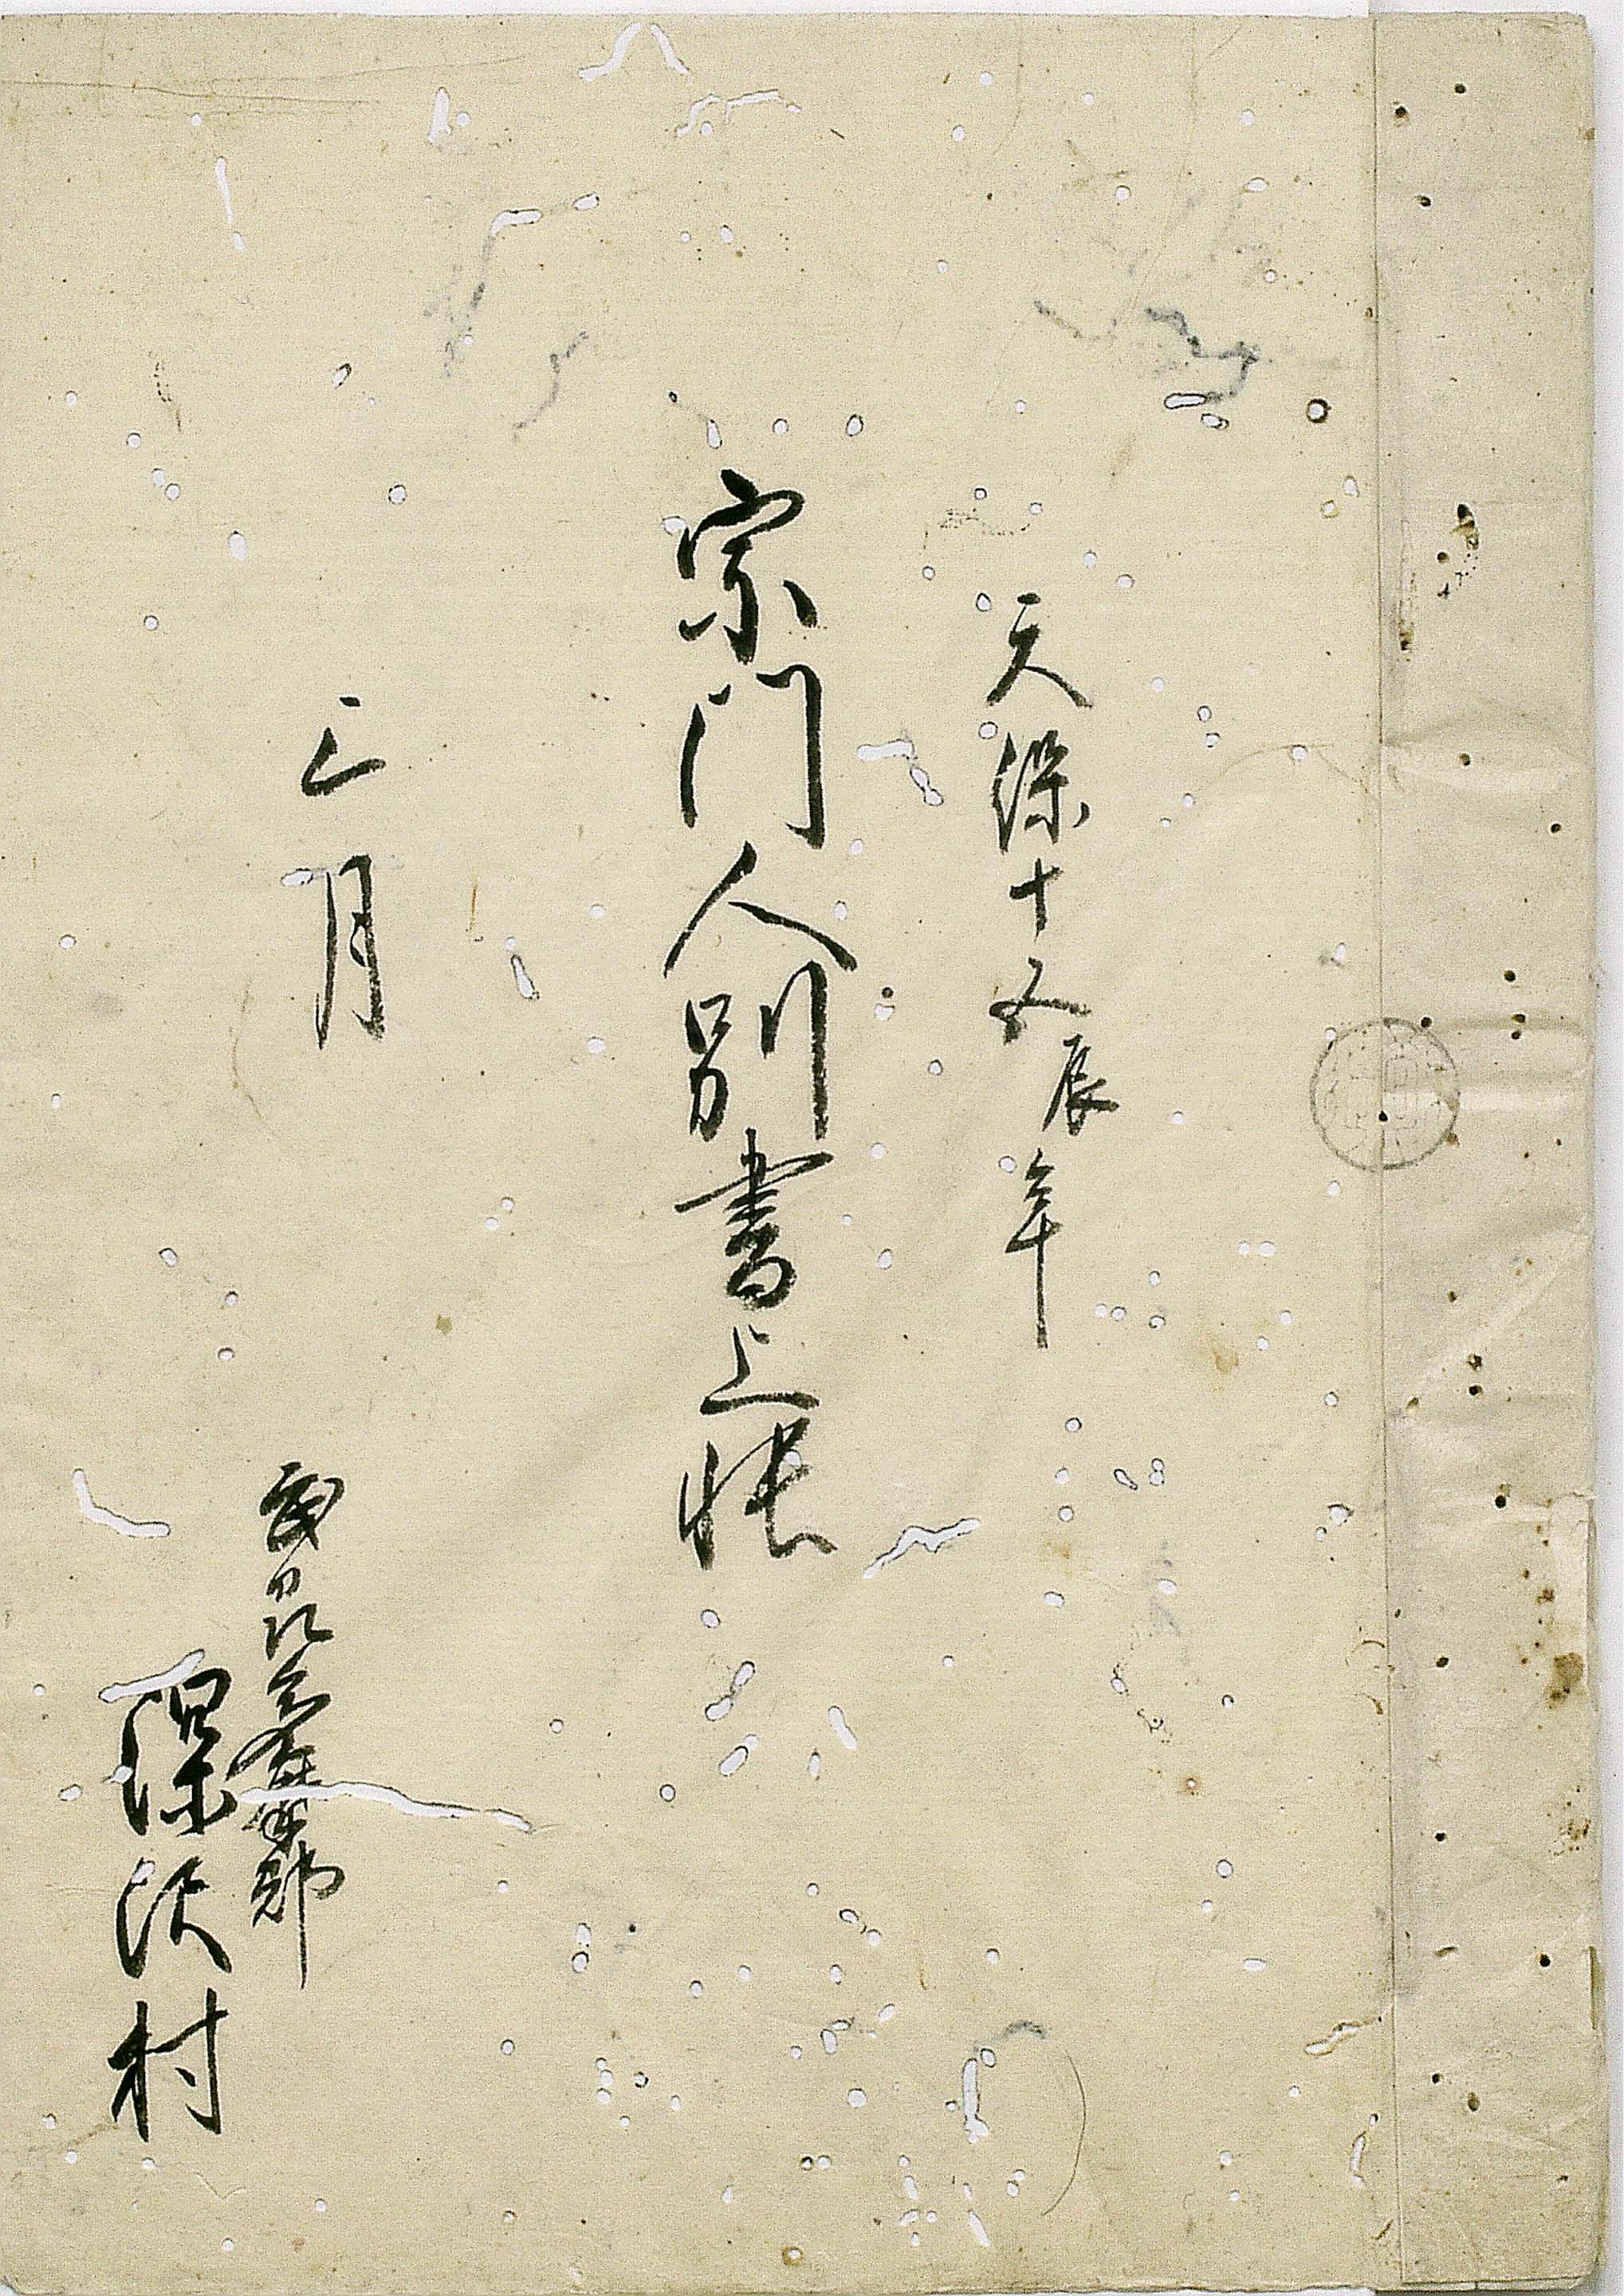 天保十五辰年
宗門人別書上帳
三月
武刕多摩郡
深沢村